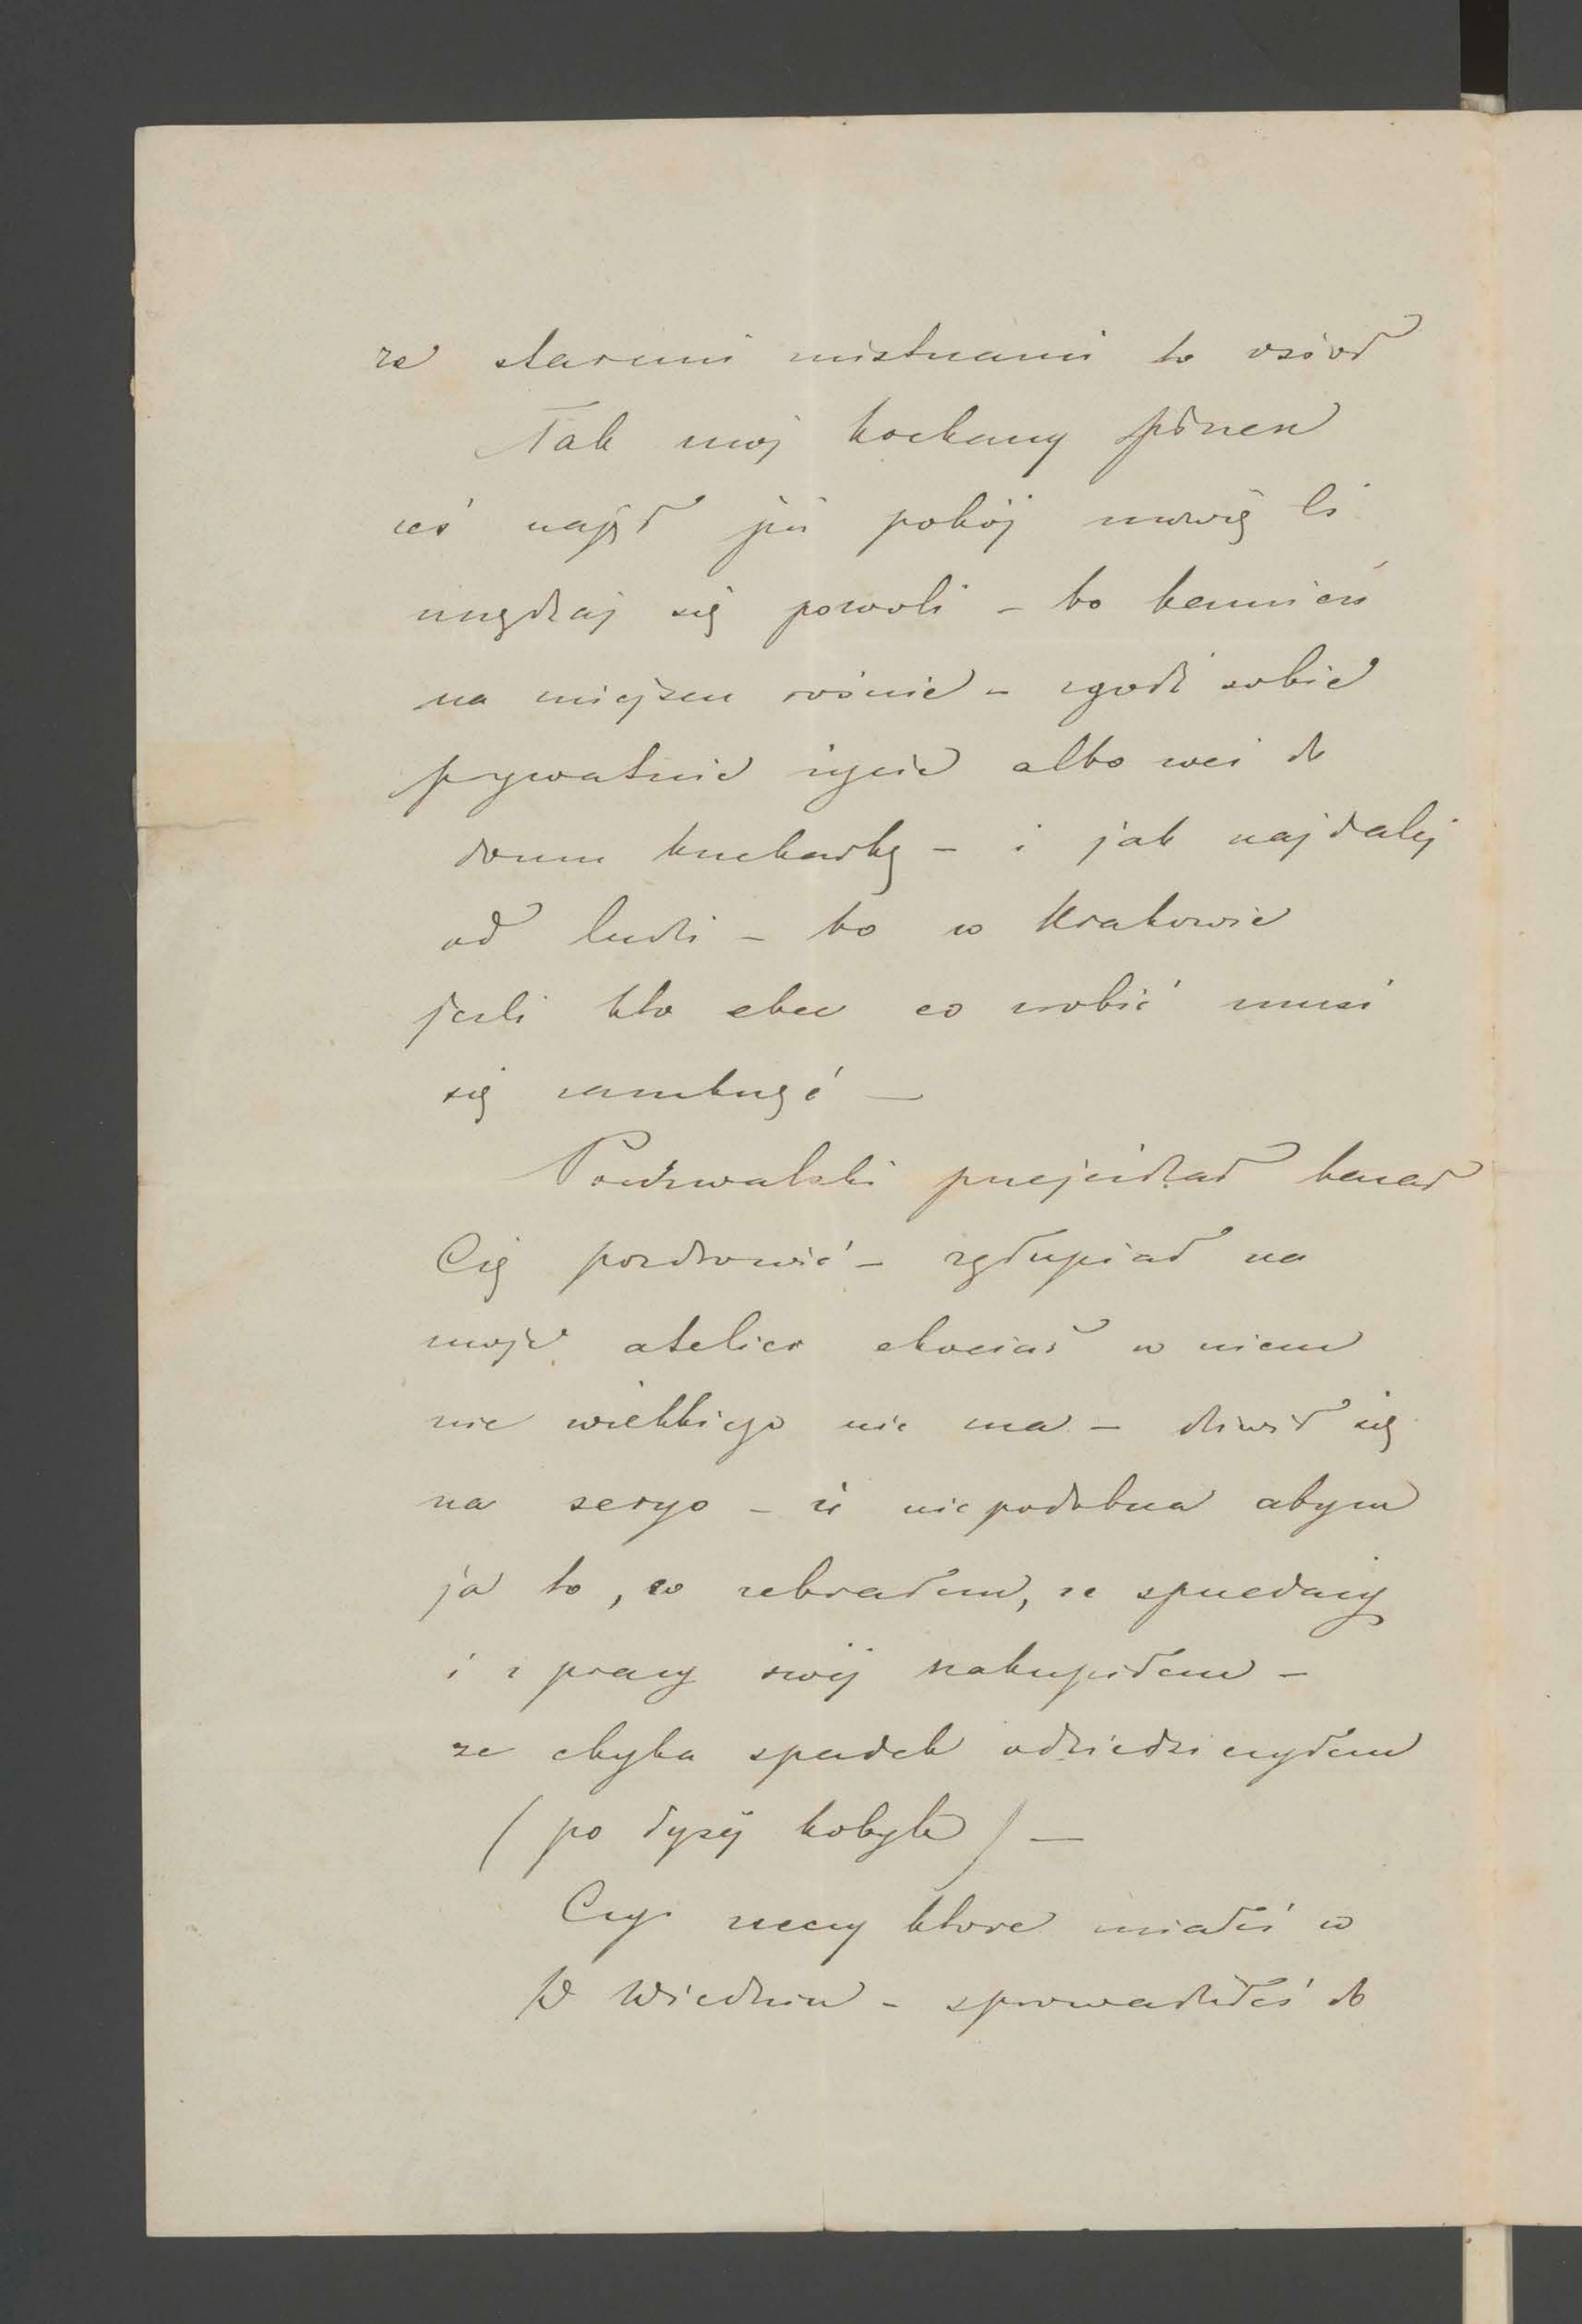 ze staremi mistrzami to osioł
Tak moj kochany
coś najął już pokój mówię Ci
urządzaj się powoli – bo kamień
na miejscu rośnie – zgodź sobie
prywatnie życie albo weź do
domu kucharkę – i jak najdalej
od ludzi – bo w Krakowie
jeśli kto chce co zrobić musi
się zamknąć —
Pochwalski przejeżdżał kazał
Cię pozdrowić – zgłupiał na
moje atelier chociaż w niem
nic wielkiego nie ma – dziwił się
na seryo – że niepodobna abym
ja to, co zebrałem, ze sprzedaży
i z pracy swej nakupiłem –
ze chyba spadek odziedziczyłem
(po łysej kobyle) —
Czy rzeczy ktore miałeś w
W Wiedniu – sprowadziłeś do